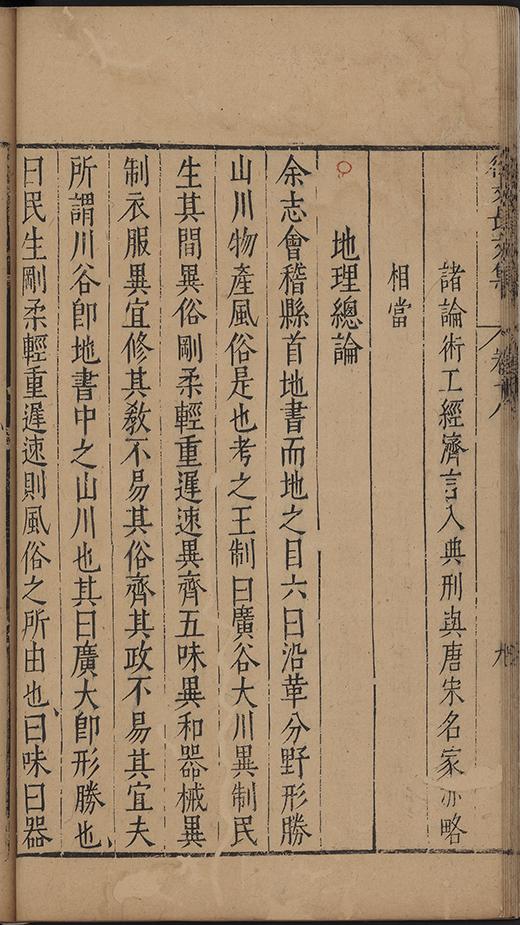 徐文長文集 卷十八 九
諸論術工經濟言入典刑與唐宋名家亦略
相當
地理總論
余志會稽縣首地書而地之目六曰沿革分野形勝
山川物產風俗是也考之王制曰廣谷大川異制民
生其間異俗剛柔輕重遲速異齊五味異和器械異
制衣服異宜修其敎不易其俗齊其政不易其宜夫
所謂川谷卽地書中之山川也其曰廣大卽形勝也
曰民生剛柔輕重遲速則風俗之所由也曰味曰器